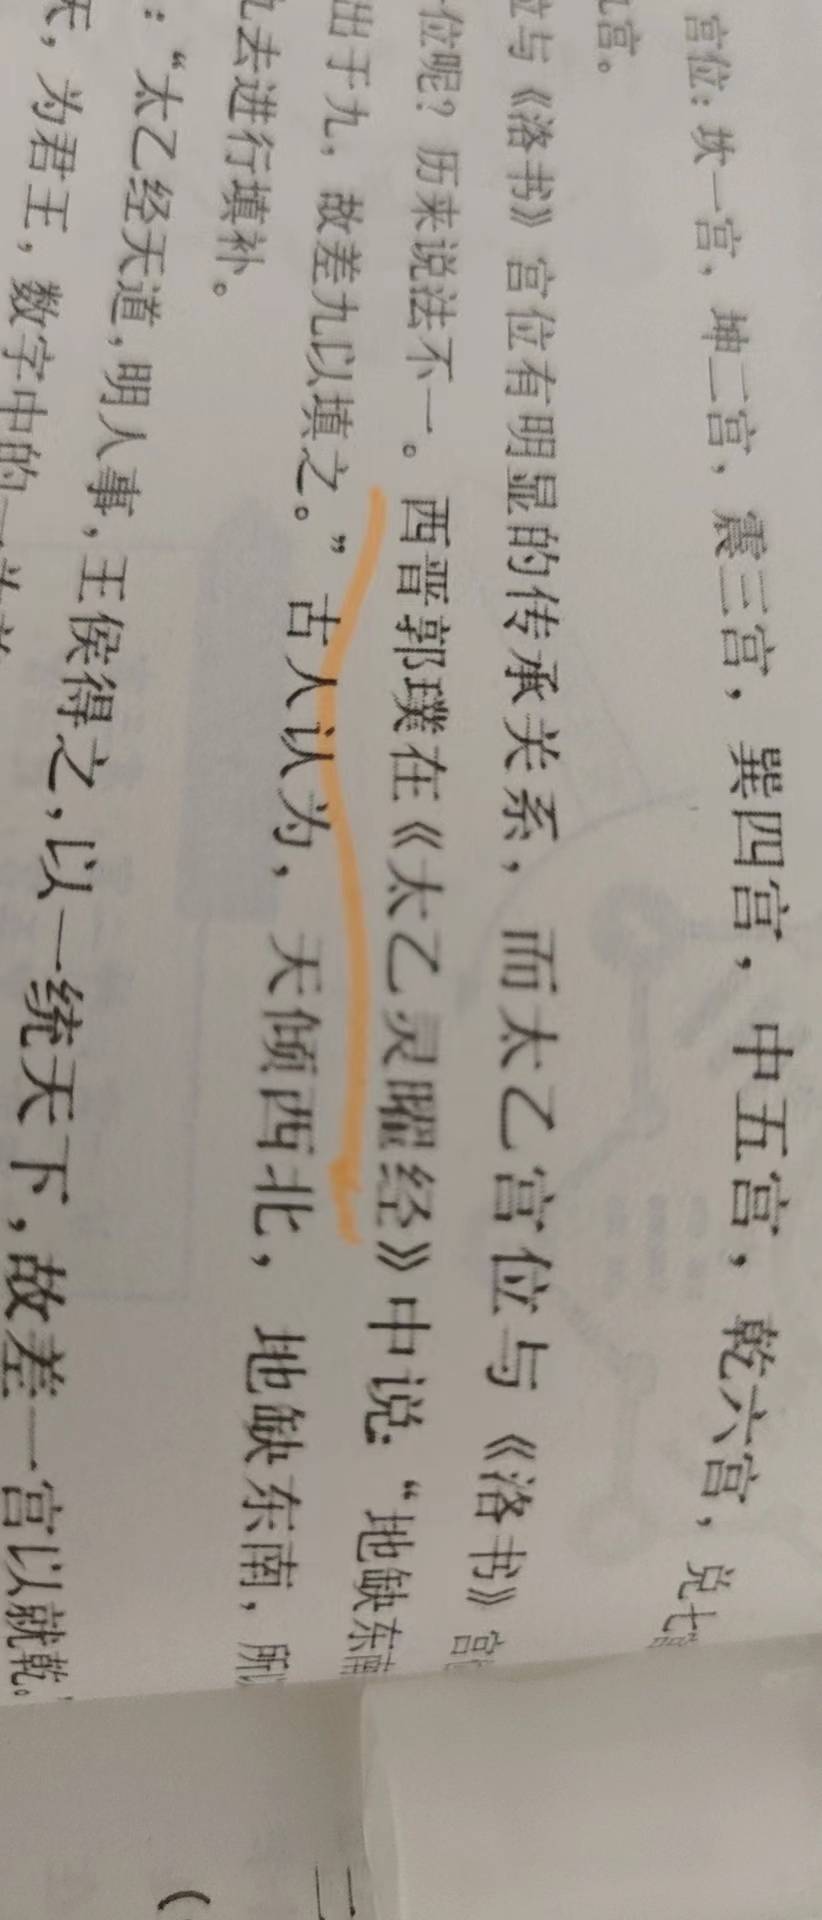 宫位：坎一宫，坤二宫，震三宫，巽四宫，中五宫，乾六宫，兑七
宫。
位与《洛书》宫位有明显的传承关系，而太乙宫位与《洛书》宫
位呢？历来说法不一。西晋郭璞在《太乙灵曜经》中说：“地缺东南
出于九，故差九以填之。”古人认为，天倾西北，地缺东南，所
去进行填补。
：“太乙经天道，明人事，王侯得之，以一统天下，故差一宫以就乾。
天，为君王，数字中的一
二
（